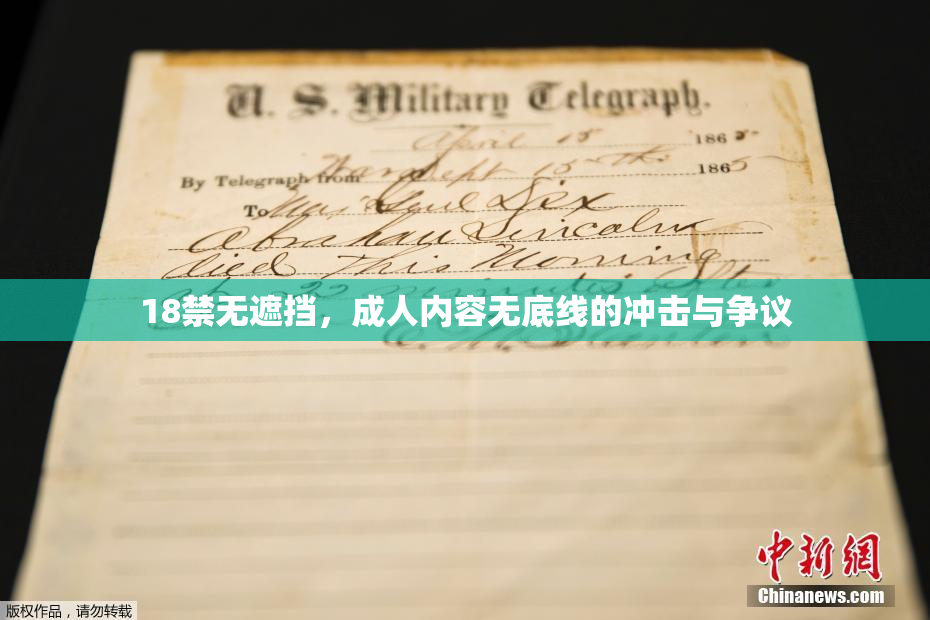 U. S. Military Telegraph.
April 15 1865
By Telegraph from War Dept 15th 1865
To Maj Genl Dix
Abraham Lincoln
died this Morning
22 minutes after
18禁无遮挡，成人内容无底线的冲击与争议
E. M. Stanton
中新网
Chinanews.com
版权作品，请勿转载